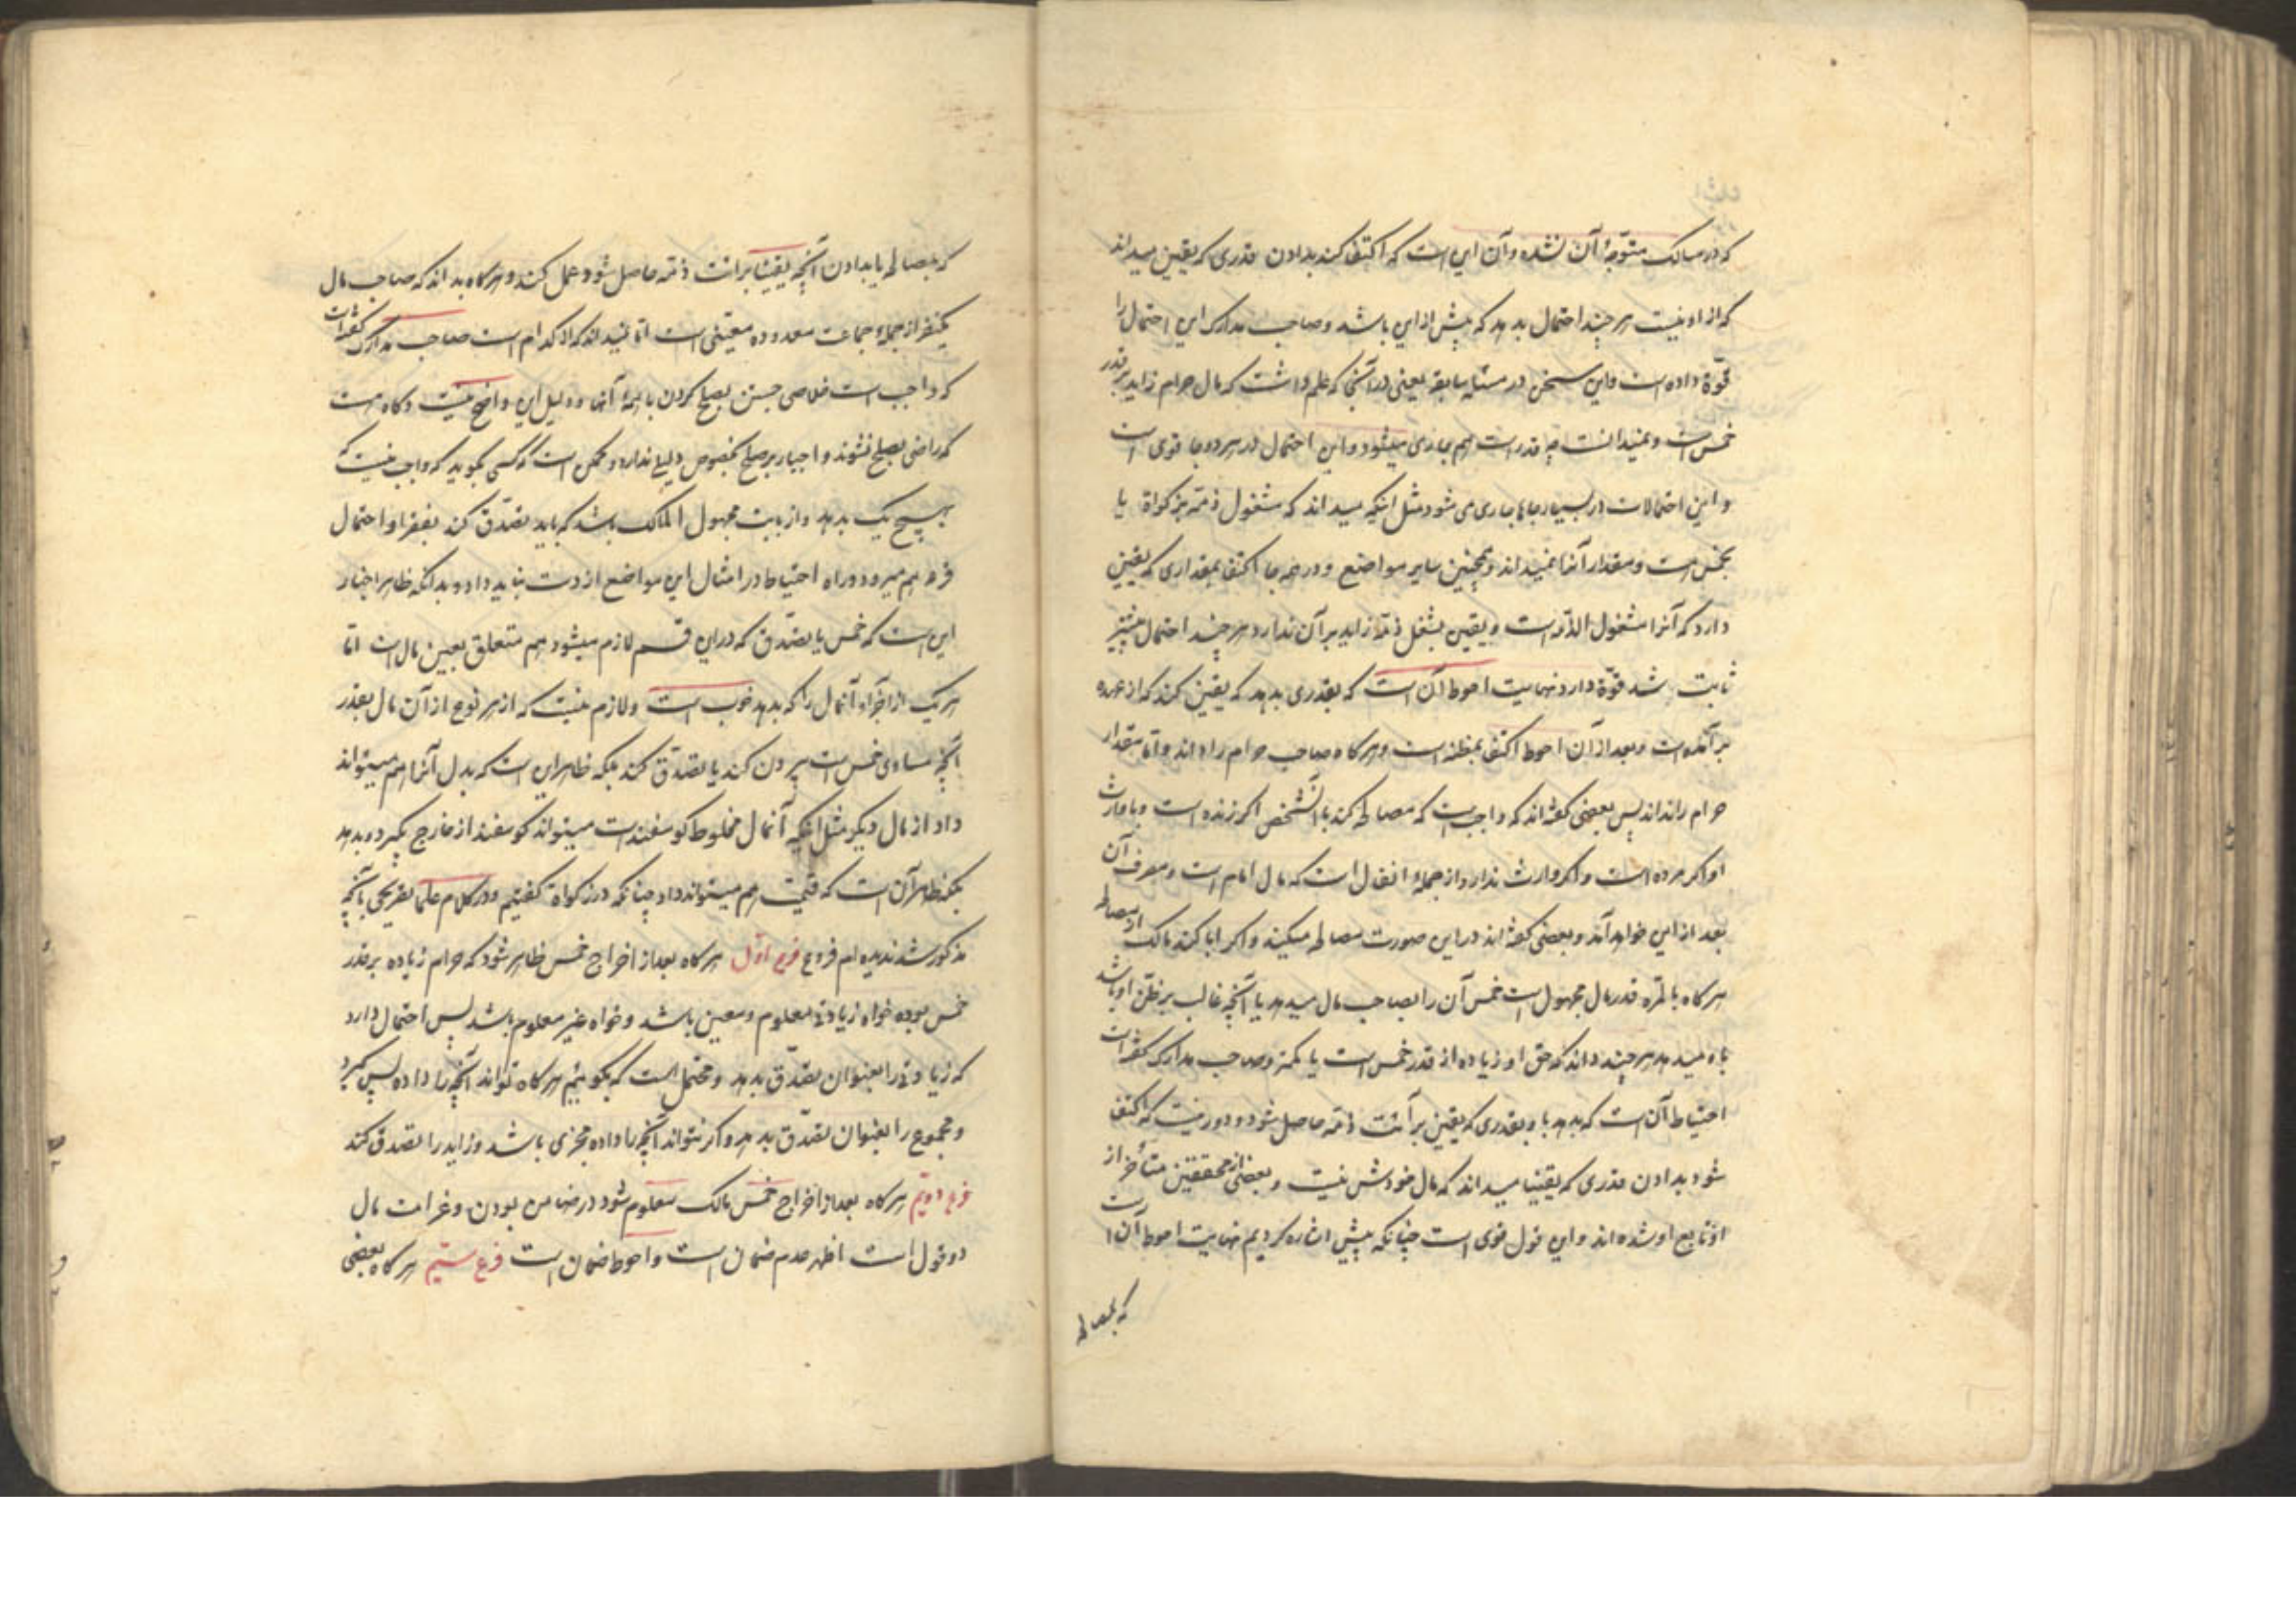 که در مسالک متوجه آن نشده و آن این است که اکتفا کند بدادن قدری که یقین میداند
که از او نیست هر چند احتمال بدهد که بیش از این باشد و صاحب مدارک این احتمال را
قوّة داده است و این سخن در مسئله سابقه یعنی در آنجا که علم داشت که مال حرام زاید بر قدر
خمس است و نمیدانست چه قدر است هم جاری میشود و این احتمال در هر دو جا قوی است
و این احتمالات در بسیار جاها جاری می شود مثل اینکه میداند که مشغول ذمّه بزکوة یا
بخمس است و مقدار آنرا نمیداند و همچنین سایر مواضع و در همه جا اکتفا بمقداری که یقین
دارد که آنرا مشغول الذّمه است و یقین بشغل ذمّه زاید بر آن ندارد هر چند احتمال بیشتر
ثابت باشد قوّة دارد نهایت احوط آن است که بقدری بدهد که یقین کند که از عهده
برآمده است و بعد از آن احوط اکتفا بمظنه است و هرگاه صاحب حرام را داند و امّا مقدار
حرام را نداند پس بعضی گفته‌اند که واجب است که مصالحه کند با آنشخص اگر زنده است و با وارث
او اگر مرده است و اگر وارث ندارد از جملهٔ انفال است که مال امام است و مصرف آن
بعد از این خواهد آمد و بعضی گفته اند در این صورت مصالحه میکند و اگر ابا کند مالک از مصالحه
هرگاه بالمرّه قدر مال مجهول است خمس آن را بصاحب مال میدهد یا آنچه غالب بر ظنّ او باشد
باو میدهد هر چند داند که حق او زیاده از قدر خمس است یا کمتر و صاحب مدارک گفته است
احتیاط آن است که بدهد باو بقدری که یقین برآئت ذمّه حاصل شود و دور نیست که اکتفا
شود بدادن قدری که یقینا میداند که مال خودش نیست و بعضی از محققین متأخر از
او تابع او شده‌اند و این قول قوی است چنانکه پیش اشاره کردیم نهایت احوط آن است
که بمصالحه
که بمصالحه یا بدادن آنچه یقینا برائت ذمّه حاصل شود عمل کند و هرگاه بداند که صاحب مال
یکنفر از جملهٔ جماعت معدوده معیّنی است امّا نمیداند که کدام است صاحب مدارک گفته است
که واجب است خلاصی جستن بصلح کردن با همهٔ آنها و دلیل این واضح نیست و گاه هست
که راضی بصلح نشوند و اجبار بر صلح بخصوص دلیلی ندارد و ممکن است که کسی بگوید که واجب نیست که
بهیچ یک بدهد و از بابت مجهول المالک باشد که باید تصدّق کند بفقرا و احتمال
قرعه هم میرود و راه احتیاط در امثال این مواضع از دست نباید داد و بدانکه ظاهر اخبار
این است که خمس یا تصدّق که در این قسم لازم میشود هم متعلق بعین مال است امّا
هر یک از اجزاء آنمال را که بدهد خوب است و لازم نیست که از هر نوع از آن مال بقدر
آنچه مساوی خمس است بیرون کند یا تصدّق کند بلکه ظاهر این است که بدل آنرا هم میتواند
داد از مال دیگر مثل اینکه آنمال مخلوط گوسفند است میتواند گوسفند از خارج بگیرد و بدهد
بلکه ظاهر آن است که قیمت هم میتواند داد چنانکه در زکواة گفتیم و در کلام علما تصریحی بآنچه
مذکور شد ندیده‌ام فروع فرع اوّل هرگاه بعد از اخراج خمس ظاهر شود که حرام زیاده بر قدر
خمس بوده خواه زیادتی معلوم و معین باشد و خواه غیر معلوم باشد پس احتمال دارد
که زیادتی را بعنوان تصدّق بدهد و محتمل است که بگوئیم هرگاه تواند آنچه را داده پس گیرد
و مجموع را بعنوان تصدّق بدهد و اگر نتواند آنچه را داده مجزی باشد و زاید را تصدق کند
فرع دویّم هرگاه بعد از اخراج خمس مالک معلوم شود در ضامن بودن و غرامت مال
دو قول است اظهر عدم ضمان است و احوط ضمان است فرع سیّم هرگاه بعضی